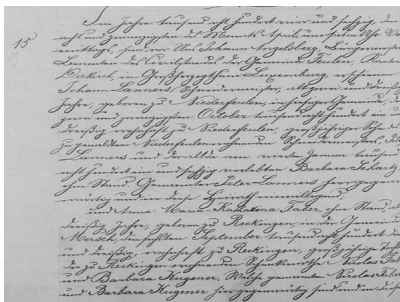 Im Jahre tausend acht hundert vier und sechzig, den
15
acht und zwanzigsten des Monats April um zehn Uhr Vor
mittags, sind vor Uns Johann Angelsberg, Bürgermeister
Beamten des Civilstands der Gemeinde Feulen, Kanton
im Großherzogthum Luxemburg, erschienen
Johann Lanners, Schneidermeister, alt zwei und dreißig
Jahre, geboren zu Niederfeulen, in hiesiger Gemeinde, den
und zwanzigsten October tausend acht hundert ein und
dreißig, wohnhaft zu Niederfeulen, großjähriger Sohn der
zu Niederfeulen wohnend Schneidermeister, Peter
Lanners und der allda am vierte Januar tausend
acht hundert verlebten Barbara Schartz
ohne Stand Gemeldeter Peter Lanners hier gegen
wärtig und in diese Heirath einwilligend,
und Anna Maria Katharina Faber, ohne Stand, alt
dreißig Jahre, geboren zu Reckingen, in der Gemeinde
Mersch, den September tausend acht hundert drei
und dreißig, wohnhaft zu Reckingen, großjährige Tochter
der zu Reckingen wohnenden Nicolas Faber
und Barbara Kugener, Welche genannten Nicolas Faber
und Barbara Kugener hier gegenwärtig sind und in diese